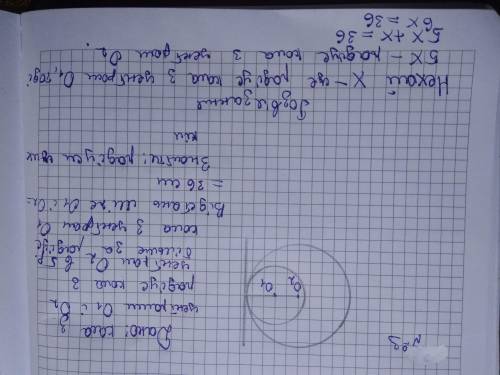 №3
Дано: кола з
центрами O₁ і O₂
радіус кола з
центром O₂ в 5 р
більше за радіус
кола з центром O₁
Відстань між O₁ і O₂ =
= 36 см
Знайти: радіуси цих
кіл
O₁
O₂
Розв'язання
Нехай X – це радіус кола з центром O₁, тоді
5X – радіус кола з центром O₂.
5X + X = 36
6X = 36